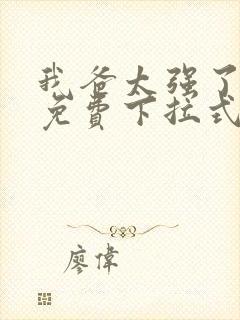 我爸太强了
免費下拉式
廖偉